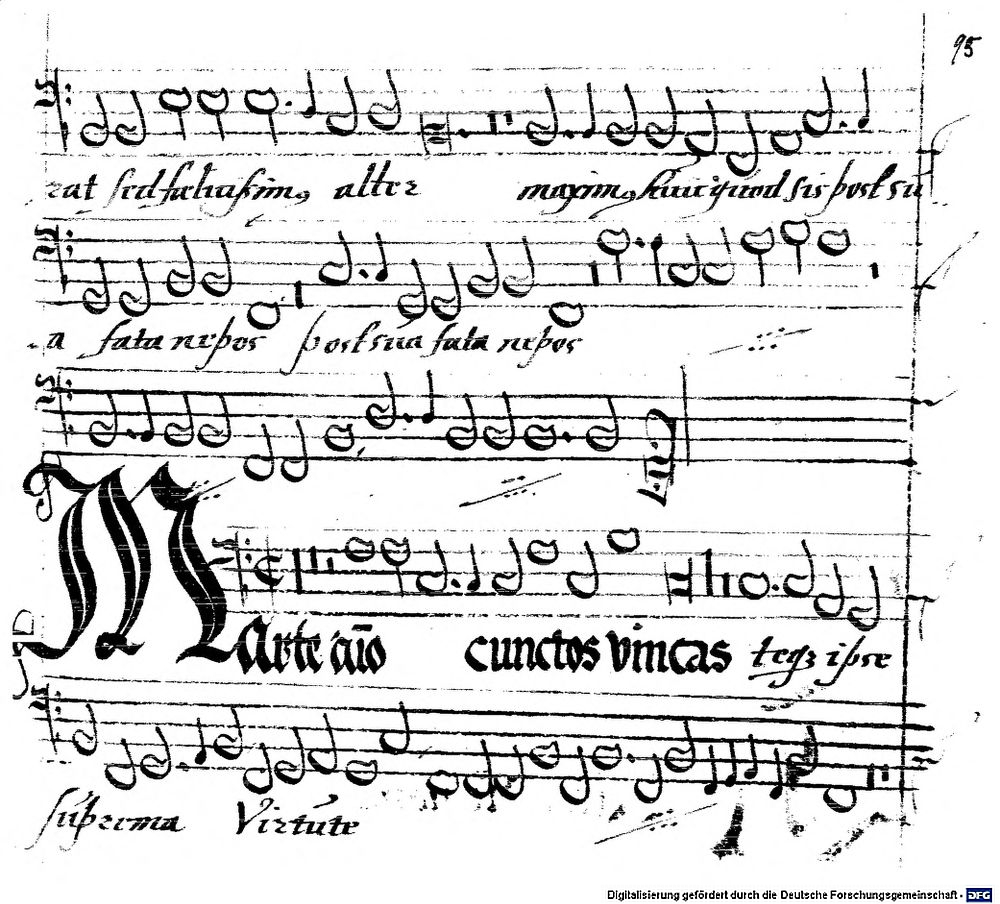 95
rat sed fælicissimꝰ alter maximꝰ quod sis post su
a fata nepos post sua fata nepos
Marte aīo cunctos vincas teqꝫ ipse
suprema Virtute
Digitalisierung gefördert durch die Deutsche Forschungsgemeinschaft - DFG